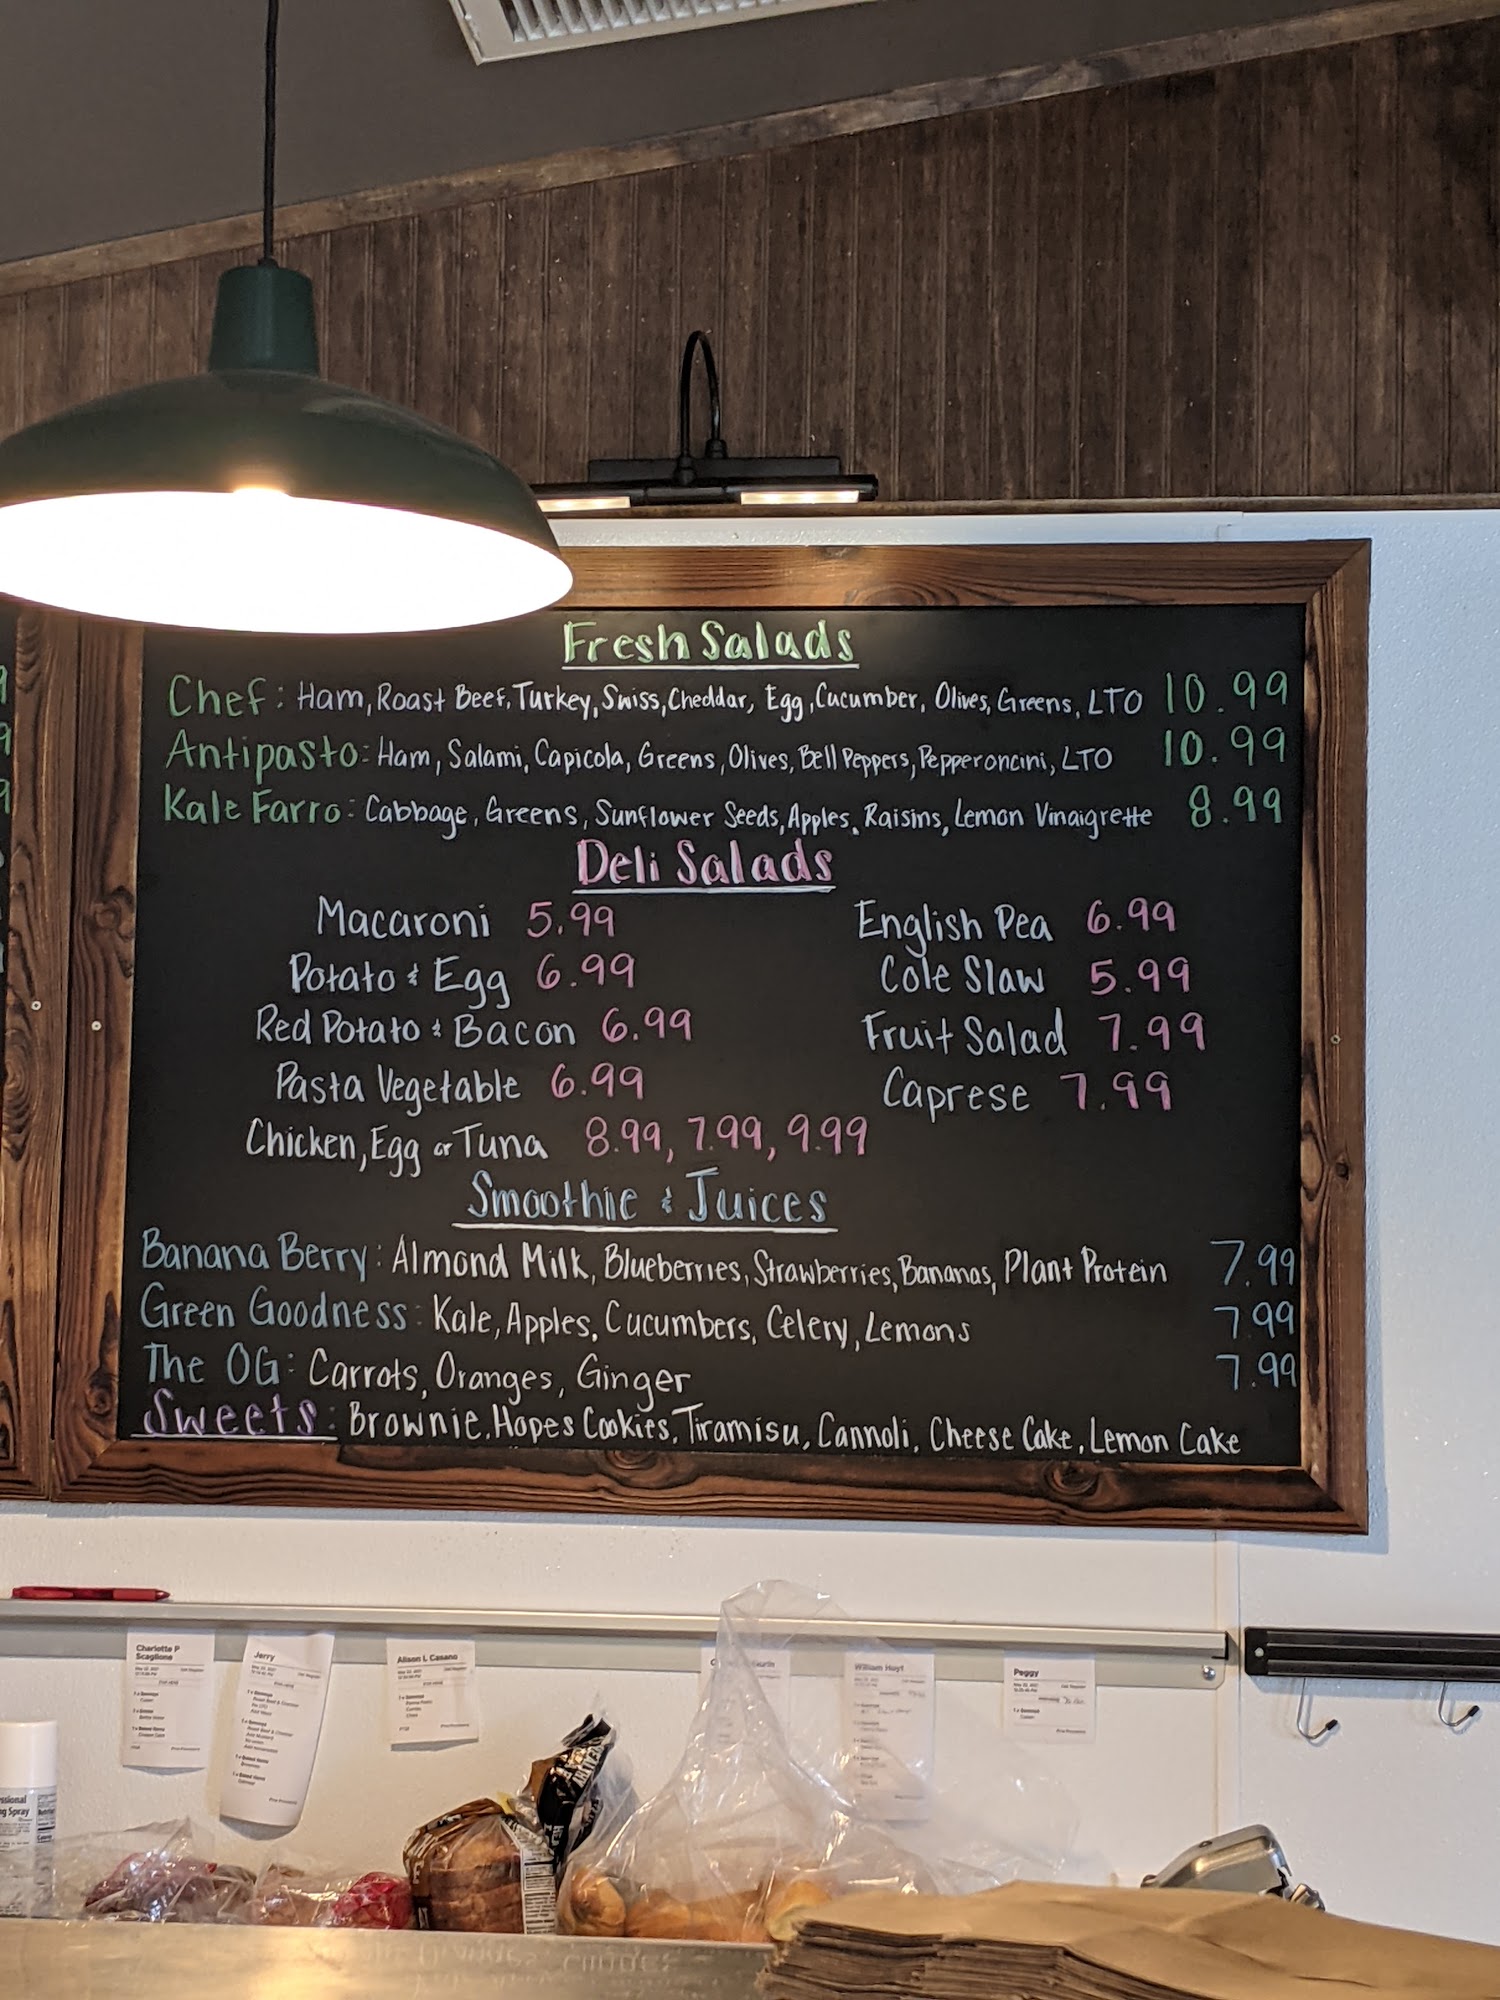 Fresh Salads
Chef: Ham, Roast Beef, Turkey, Swiss, Cheddar, Egg, Cucumber, Olives, Greens, LTO 10.99
Antipasto: Ham, Salami, Capicola, Greens, Olives, Bell Peppers, Pepperoncini, LTO 10.99
Kale Farro: Cabbage, Greens, Sunflower Seeds, Apples, Raisins, Lemon Vinaigrette 8.99
Deli Salads
Macaroni 5.99
Potato & Egg 6.99
Red Potato & Bacon 6.99
Pasta Vegetable 6.99
Chicken, Egg or Tuna 8.99, 7.99, 9.99
English Pea 6.99
Cole Slaw 5.99
Fruit Salad 7.99
Caprese 7.99
Smoothie & Juices
Banana Berry: Almond Milk, Blueberries, Strawberries, Bananas, Plant Protein 7.99
Green Goodness: Kale, Apples, Cucumbers, Celery, Lemons 7.99
The OG: Carrots, Oranges, Ginger 7.99
Sweets: Brownie, Hopes Cookies, Tiramisu, Cannoli, Cheese Cake, Lemon Cake
Charlotte P
Scaglione
Jerry
Alison L Casano
William Hoyt
Peggy